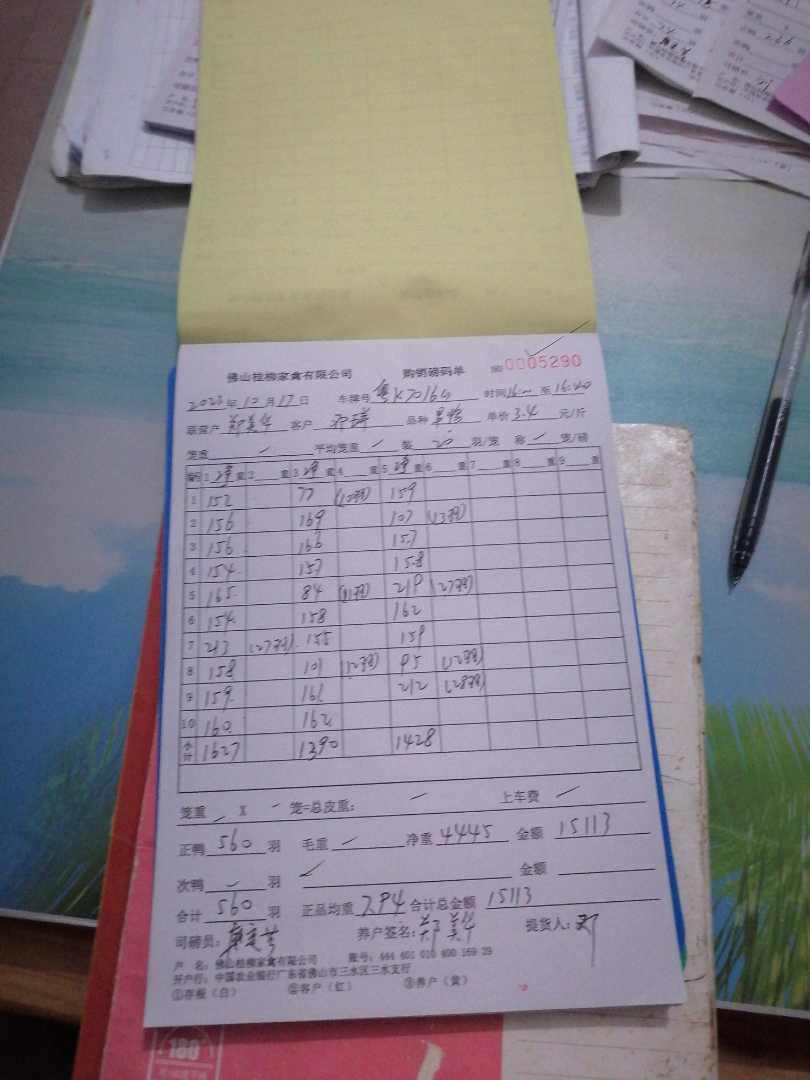 佛山桂柳家禽有限公司 购销磅码单 NO 0005290
2023年10月17日 车牌号 粤K70164 时间16: 至16:40
联营户 郑美华 客户 邓 品种 单价3.4 元/斤
笼重 / 平均笼重 / 装 20 羽/笼 称 / 笼/磅
1 净 重 2 重 3 净 重 4 重 5 净 重 6 重 7 重 8 重 9 重
1 152 77 (10羽) 159
2 156 169 107 (13羽)
3 156 166 157
4 154 157 158
5 165 84 (11羽) 219 (27羽)
6 154 158 162
7 213 (27羽) 155 159
8 158 101 (12羽) 95 (12羽)
9 159 161 212 (28羽)
10 160 162
合计 1627 1390 1428
笼重 / X 笼=总皮重: 上车费 /
正鸭 560 羽 毛重 / 净重 4445 金额 15113
次鸭 羽 金额
合计 560 羽 正品均重 7.94 合计总金额 15113
司磅员: 养户签名: 郑美华 提货人: 邓
户 名: 佛山桂柳家禽有限公司 账号: 444 601 010 400 169 39
开户行: 中国农业银行广东省佛山市三水区三水支行
①存根(白) ②客户(红) ③养户(黄)
180°